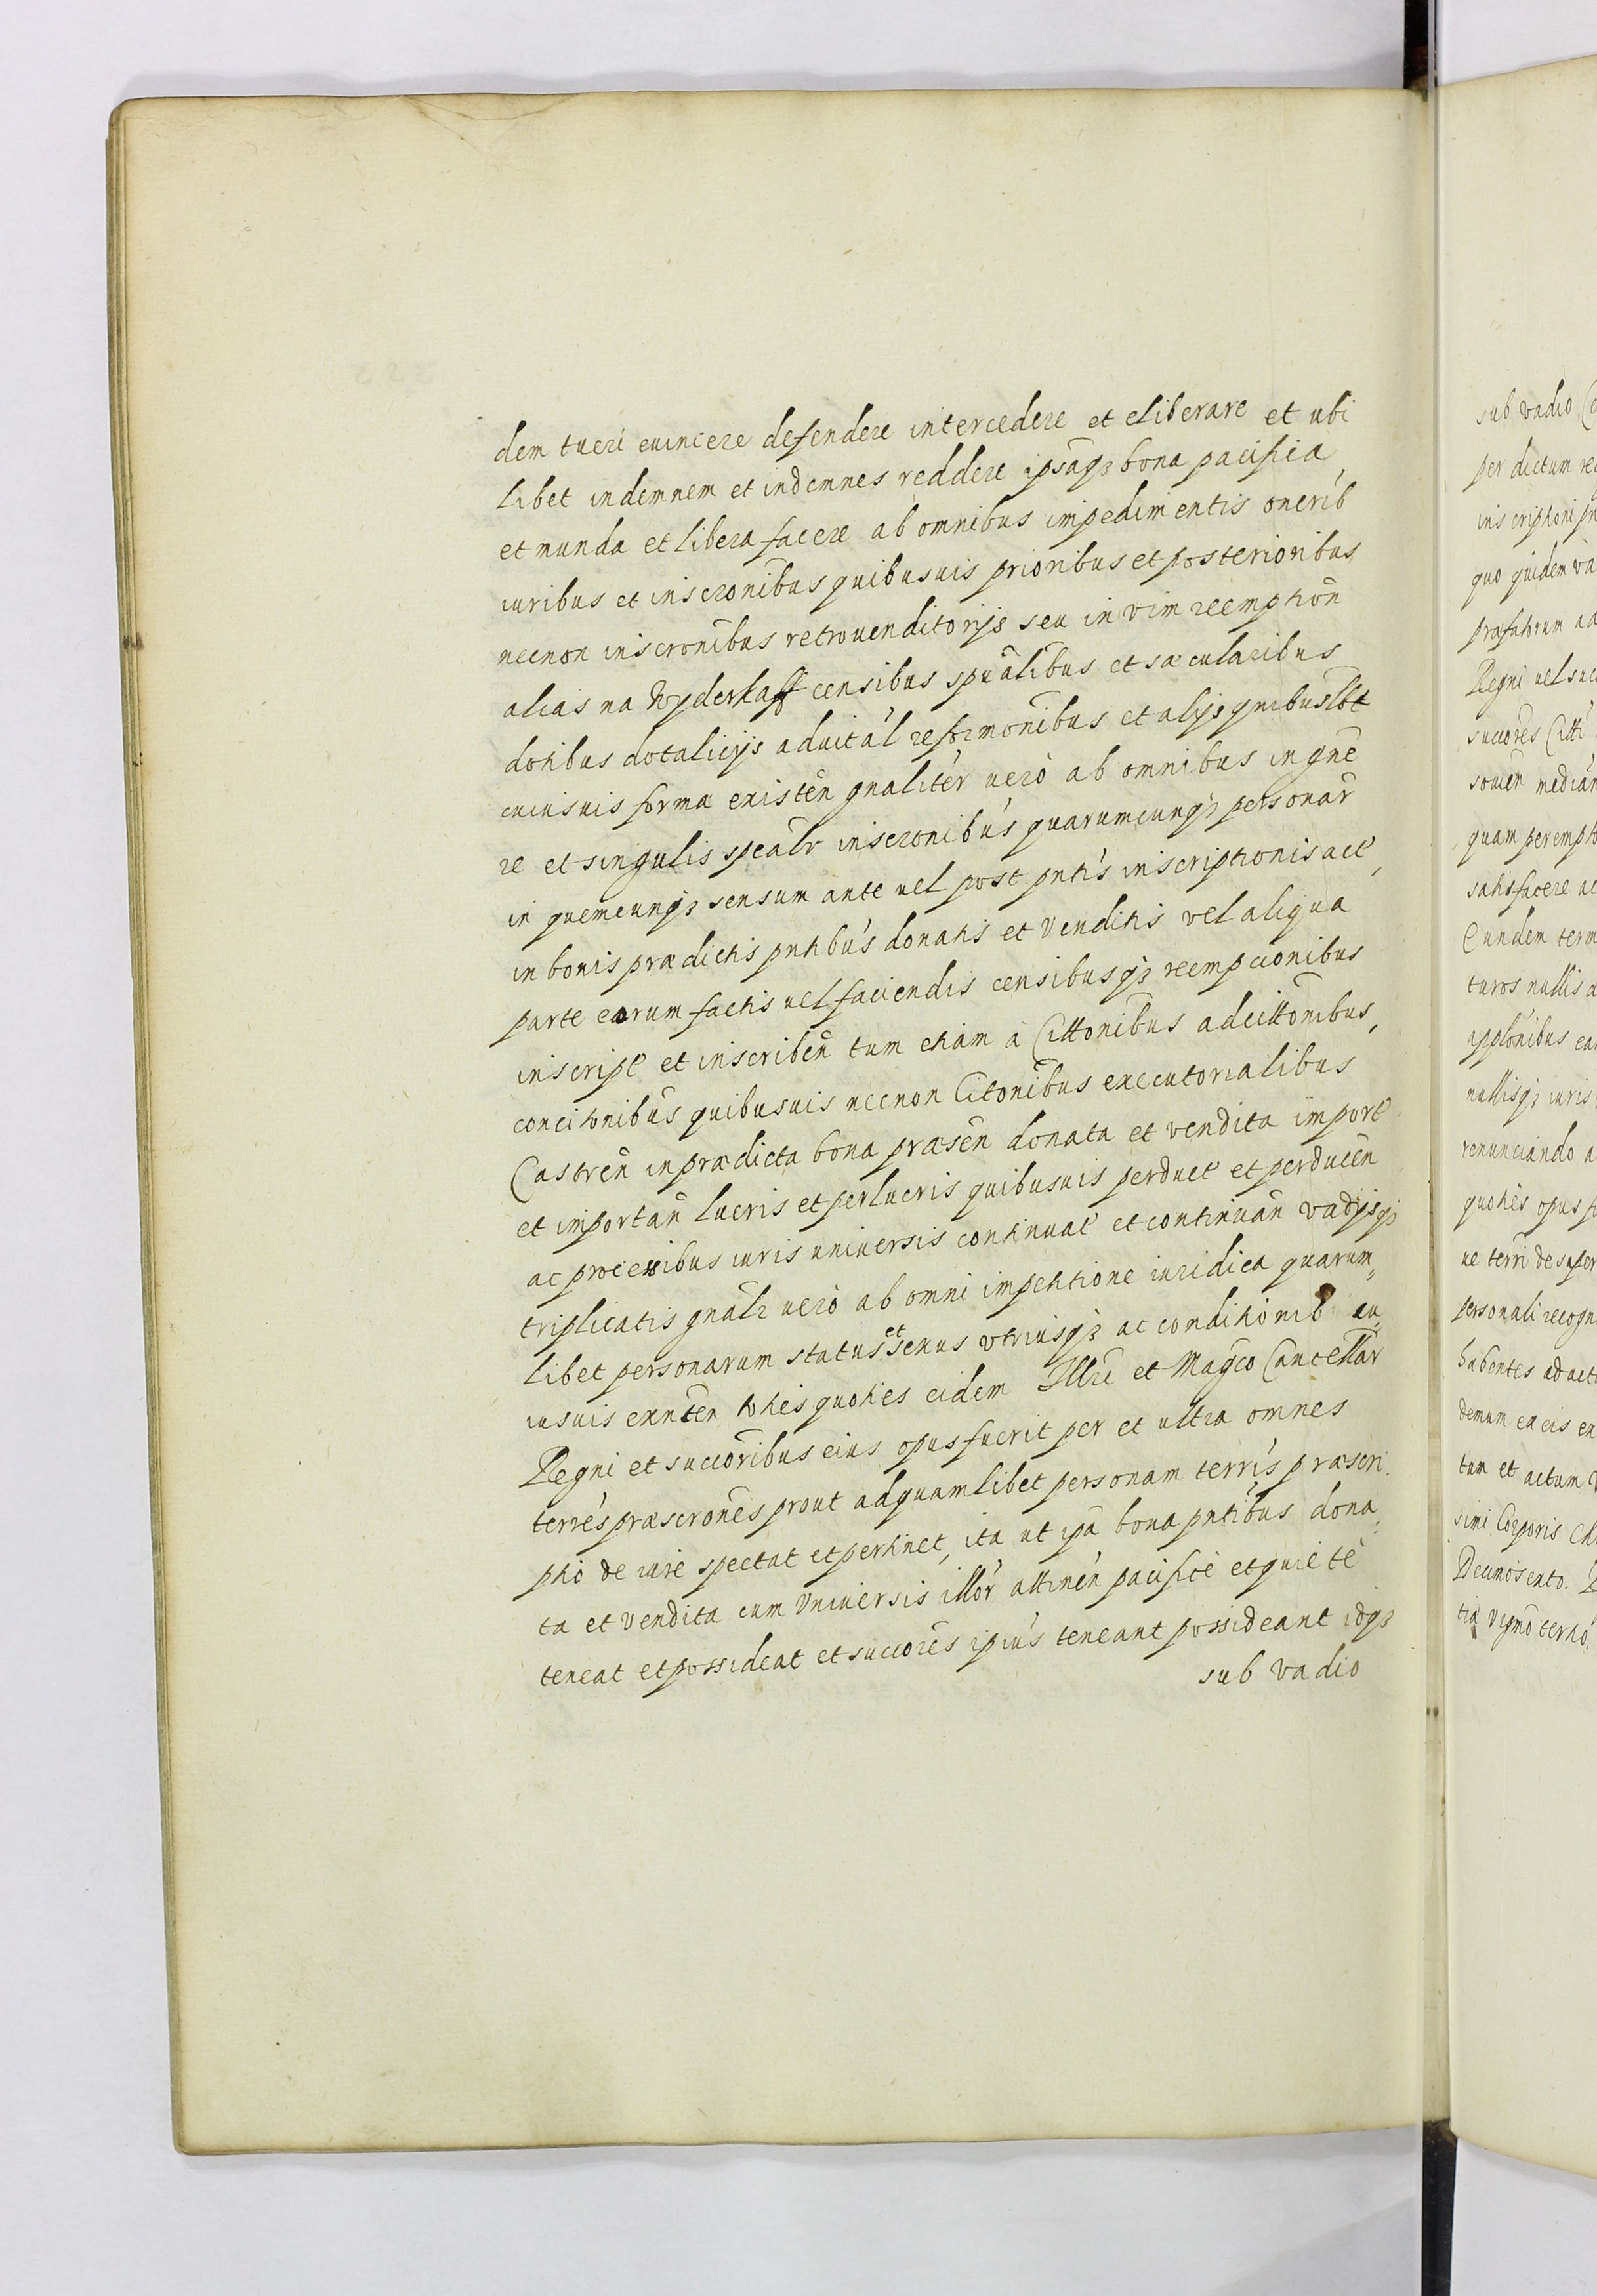 dem tueri euincere defendere intercedere et eliberare et ubi
libet indemnem et indemnes reddere ipsaqȝ bona pacifica
et munda et libera facere ab omnibus impedimentis onerib
iuribus et inscronibus quibusuis prioribus et posterioribus
necnon inscronibus retrouenditorijs seu in vim reemption
alias na Wyderkaff censibus spũalibus et sæcularibus
dotibus dotalicijs aduital reformonibus et alijs quibuslbt
cuiusuis forma existen gnaliter uero ab omnibus in gne
re et singulis spealr inscronibus quarumcunqȝ personar
in quemcunqȝ sensum ante uel post pntis inscriptionis act
in bonis prædictis pntibus donatis et venditis vel aliqua
parte earum factis uel faciendis censibusqȝ reempcionibus
inscript et inscriben tum etiam a Cittonibus adcittonibus
concitonibus quibusuis necnon Citonibus executorialibus
Castren in prædicta bona præsen donata et vendita import
et importan lucris et perlucris quibusuis perduct et perducen
ac processibus iuris uniuersis continuat et continuan vadijsqȝ
triplicatis gnalr uero ab omni impetitione iuridica quarum„
libet personarum status et sexus vtriusqȝ ac conditionib cu„
iusuis exnten toties quoties eidem Illri et Magco Cancellar
Regni et succoribus eius opus fuerit per et ultra omnes
terres præscrones prout ad quamlibet personam terris præscri
ptio de iure spectat et pertinet, ita ut ipa bona pntibus dona„
ta et vendita cum vniuersis illor attinen pacifice et quiete
teneat et possideat et succores ipius teneant possideant idqȝ
sub vadio
sub vadio
per dictum
quo quidem
præfatorum
Regni uel
succores
souen
quam
satisfacere
Eundem
turos nullis
nullisqȝ iuris
renunciando
quoties opus
ue terri desuper
personali
habentes ad
demum ex eis
tum et actum
simi Corporis